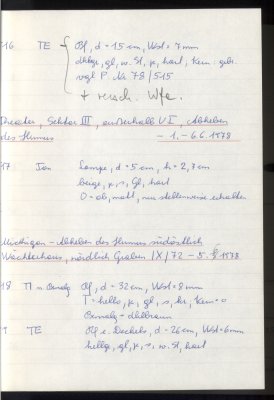 16 TE Bf, d = 15 cm, Wst = 7 mm
dklge, gl, w. St, k, hart, Kern: gebr.
vgl P Nr. 78/515
+ versch. Wfr.
Theater, Sektor III, außerhalb VI, Abheben
des Humus - 1. - 6.6.1978
17 Ton Lampe, d = 5 cm, h = 2,7 cm
beige, k, s, Gl, hart
O = ob, matt, nur stellenweise erhalten
Michigan - Abheben des Humus südöstlich
Wächterhaus, nördlich Graben IX/72 - 5. 1978
18 Bf, d = 32 cm, Wst = 8 mm
T = hello, k, gl, s, hr, Kern = o
Bemalg = dklbraun
TE Bf e. Deckels, d = 26 cm, Wst = 6 mm
hellge, gl, k, s, w. St, hart